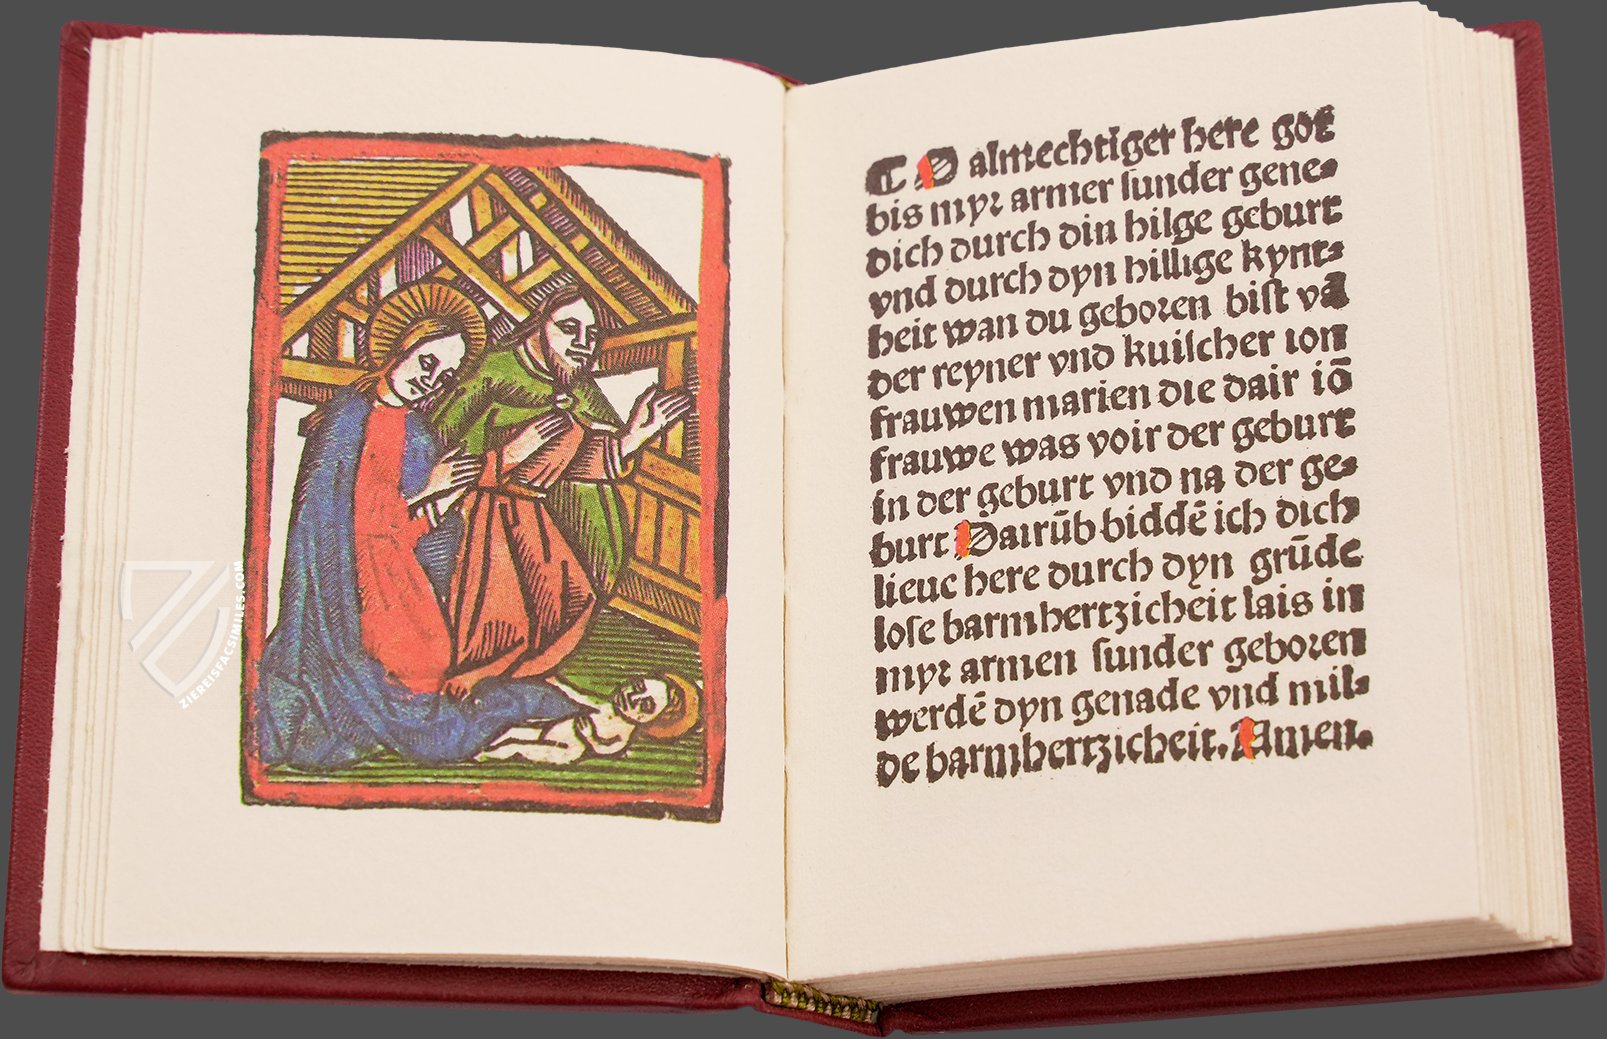 ZIEREISFACSIMILES.COM
¶ O almechtiger here got
bis myr armer sunder gene⸗
dich durch din hilge geburt
vnd durch dyn hillige kynt⸗
heit wan du geboren bist vā
der reyner vnd kuischer ion
frauwen marien die dair iō
frauwe was voir der geburt
in der geburt vnd na der ge⸗
burt Dairūb biddē ich dich
lieue here durch dyn grūde
lose barmhertzicheit lais in
myr armen sunder geboren
werdē dyn genade vnd mil⸗
de barmhertzicheit. Amen.